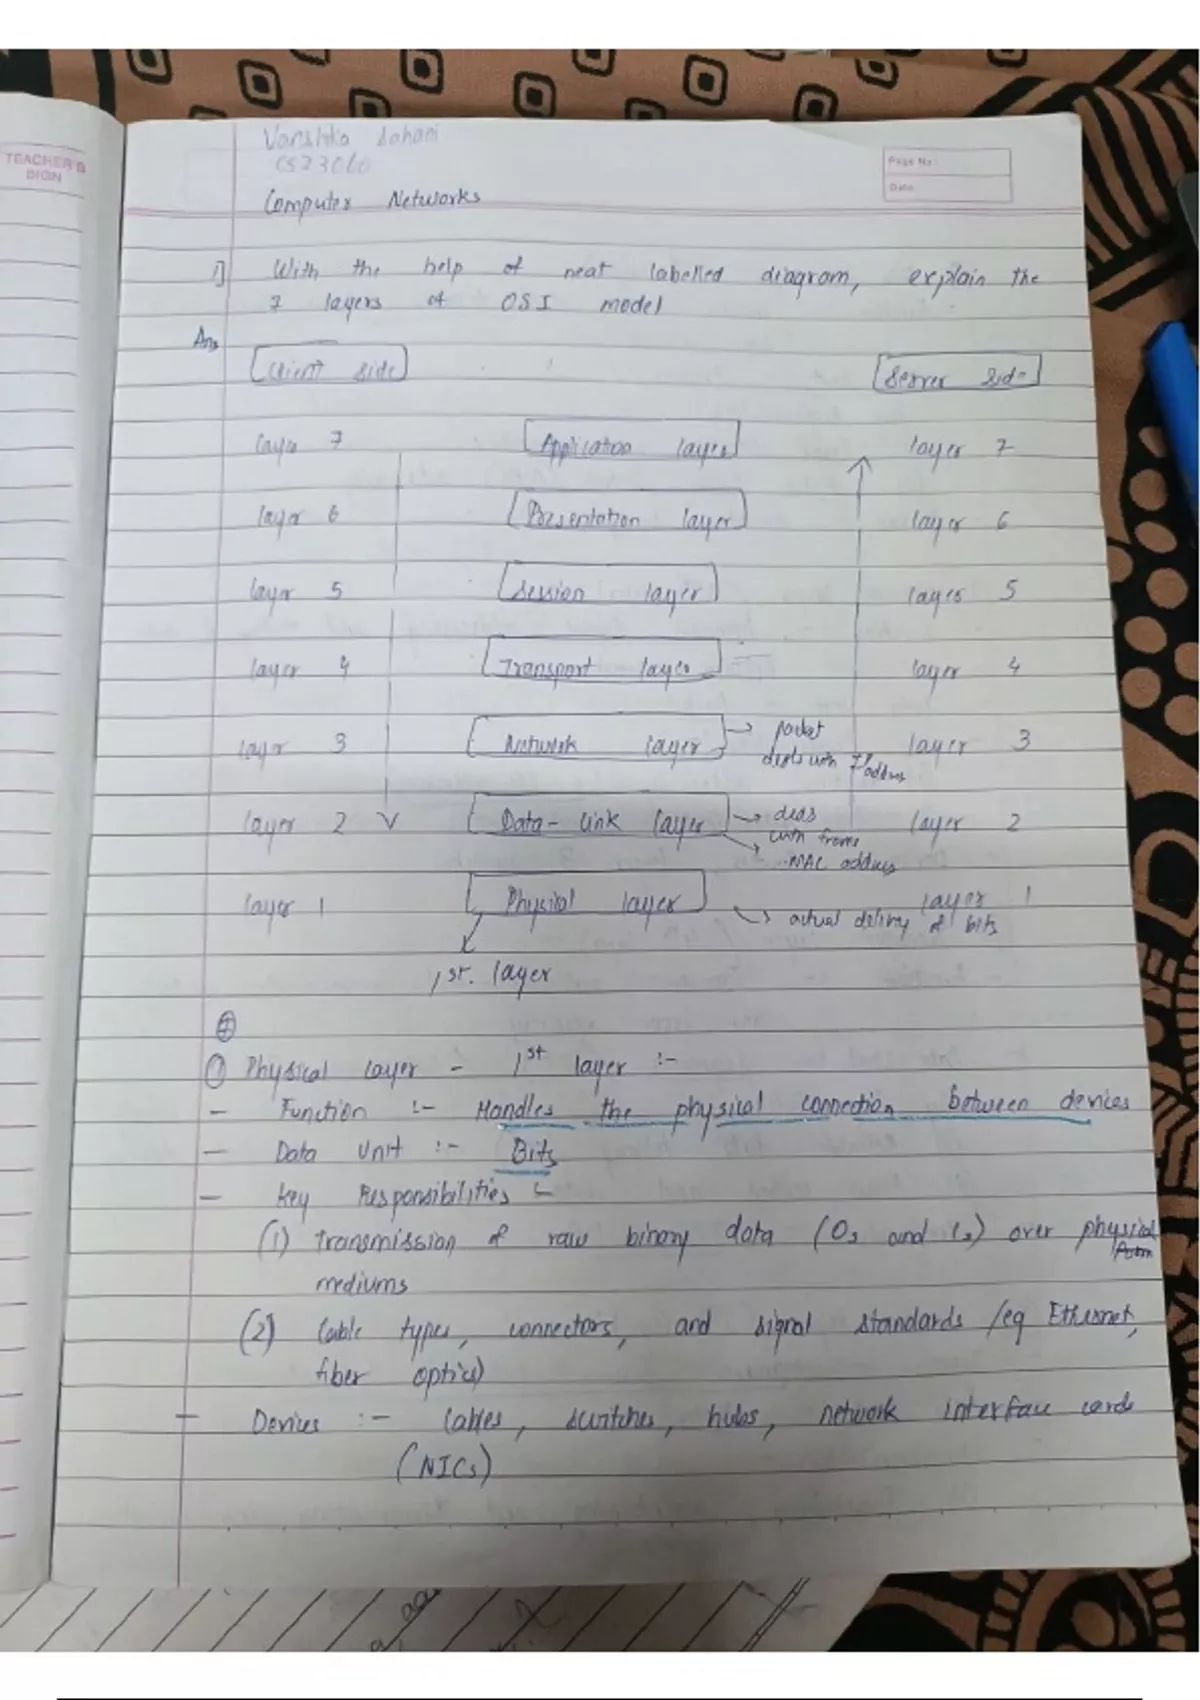 TEACHER'S
SIGN
Varshka Sahani
CS23060
Page No.
Date
Computer Networks
1] With the help of neat labelled diagram, explain the
7 layers of OSI model
Ans
Client side Server Side
Layer 7 Application layer layer 7
layer 6 Presentation layer layer 6
layer 5 Session layer layer 5
layer 4 Transport layer layer 4
layer 3 Network layer → packet layer 3
deals with IP address
layer 2 Data-link layer → deals layer 2
with frame
→ MAC address
layer 1 Physical layer layer 1
→ actual delivry of bits
1st. layer
① Physical layer - 1st layer :-
- Function :- Handles the physical connection between devices
- Data Unit :- Bits
- Key Responsibilities :-
(1) Transmission of raw binary data (0s and 1s) over physical
mediums
(2) Cable types, connectors, and signal standards (eg Ethernet,
fiber optics)
- Devices :- Cables, switches, hubs, network interface cards
(NICs)